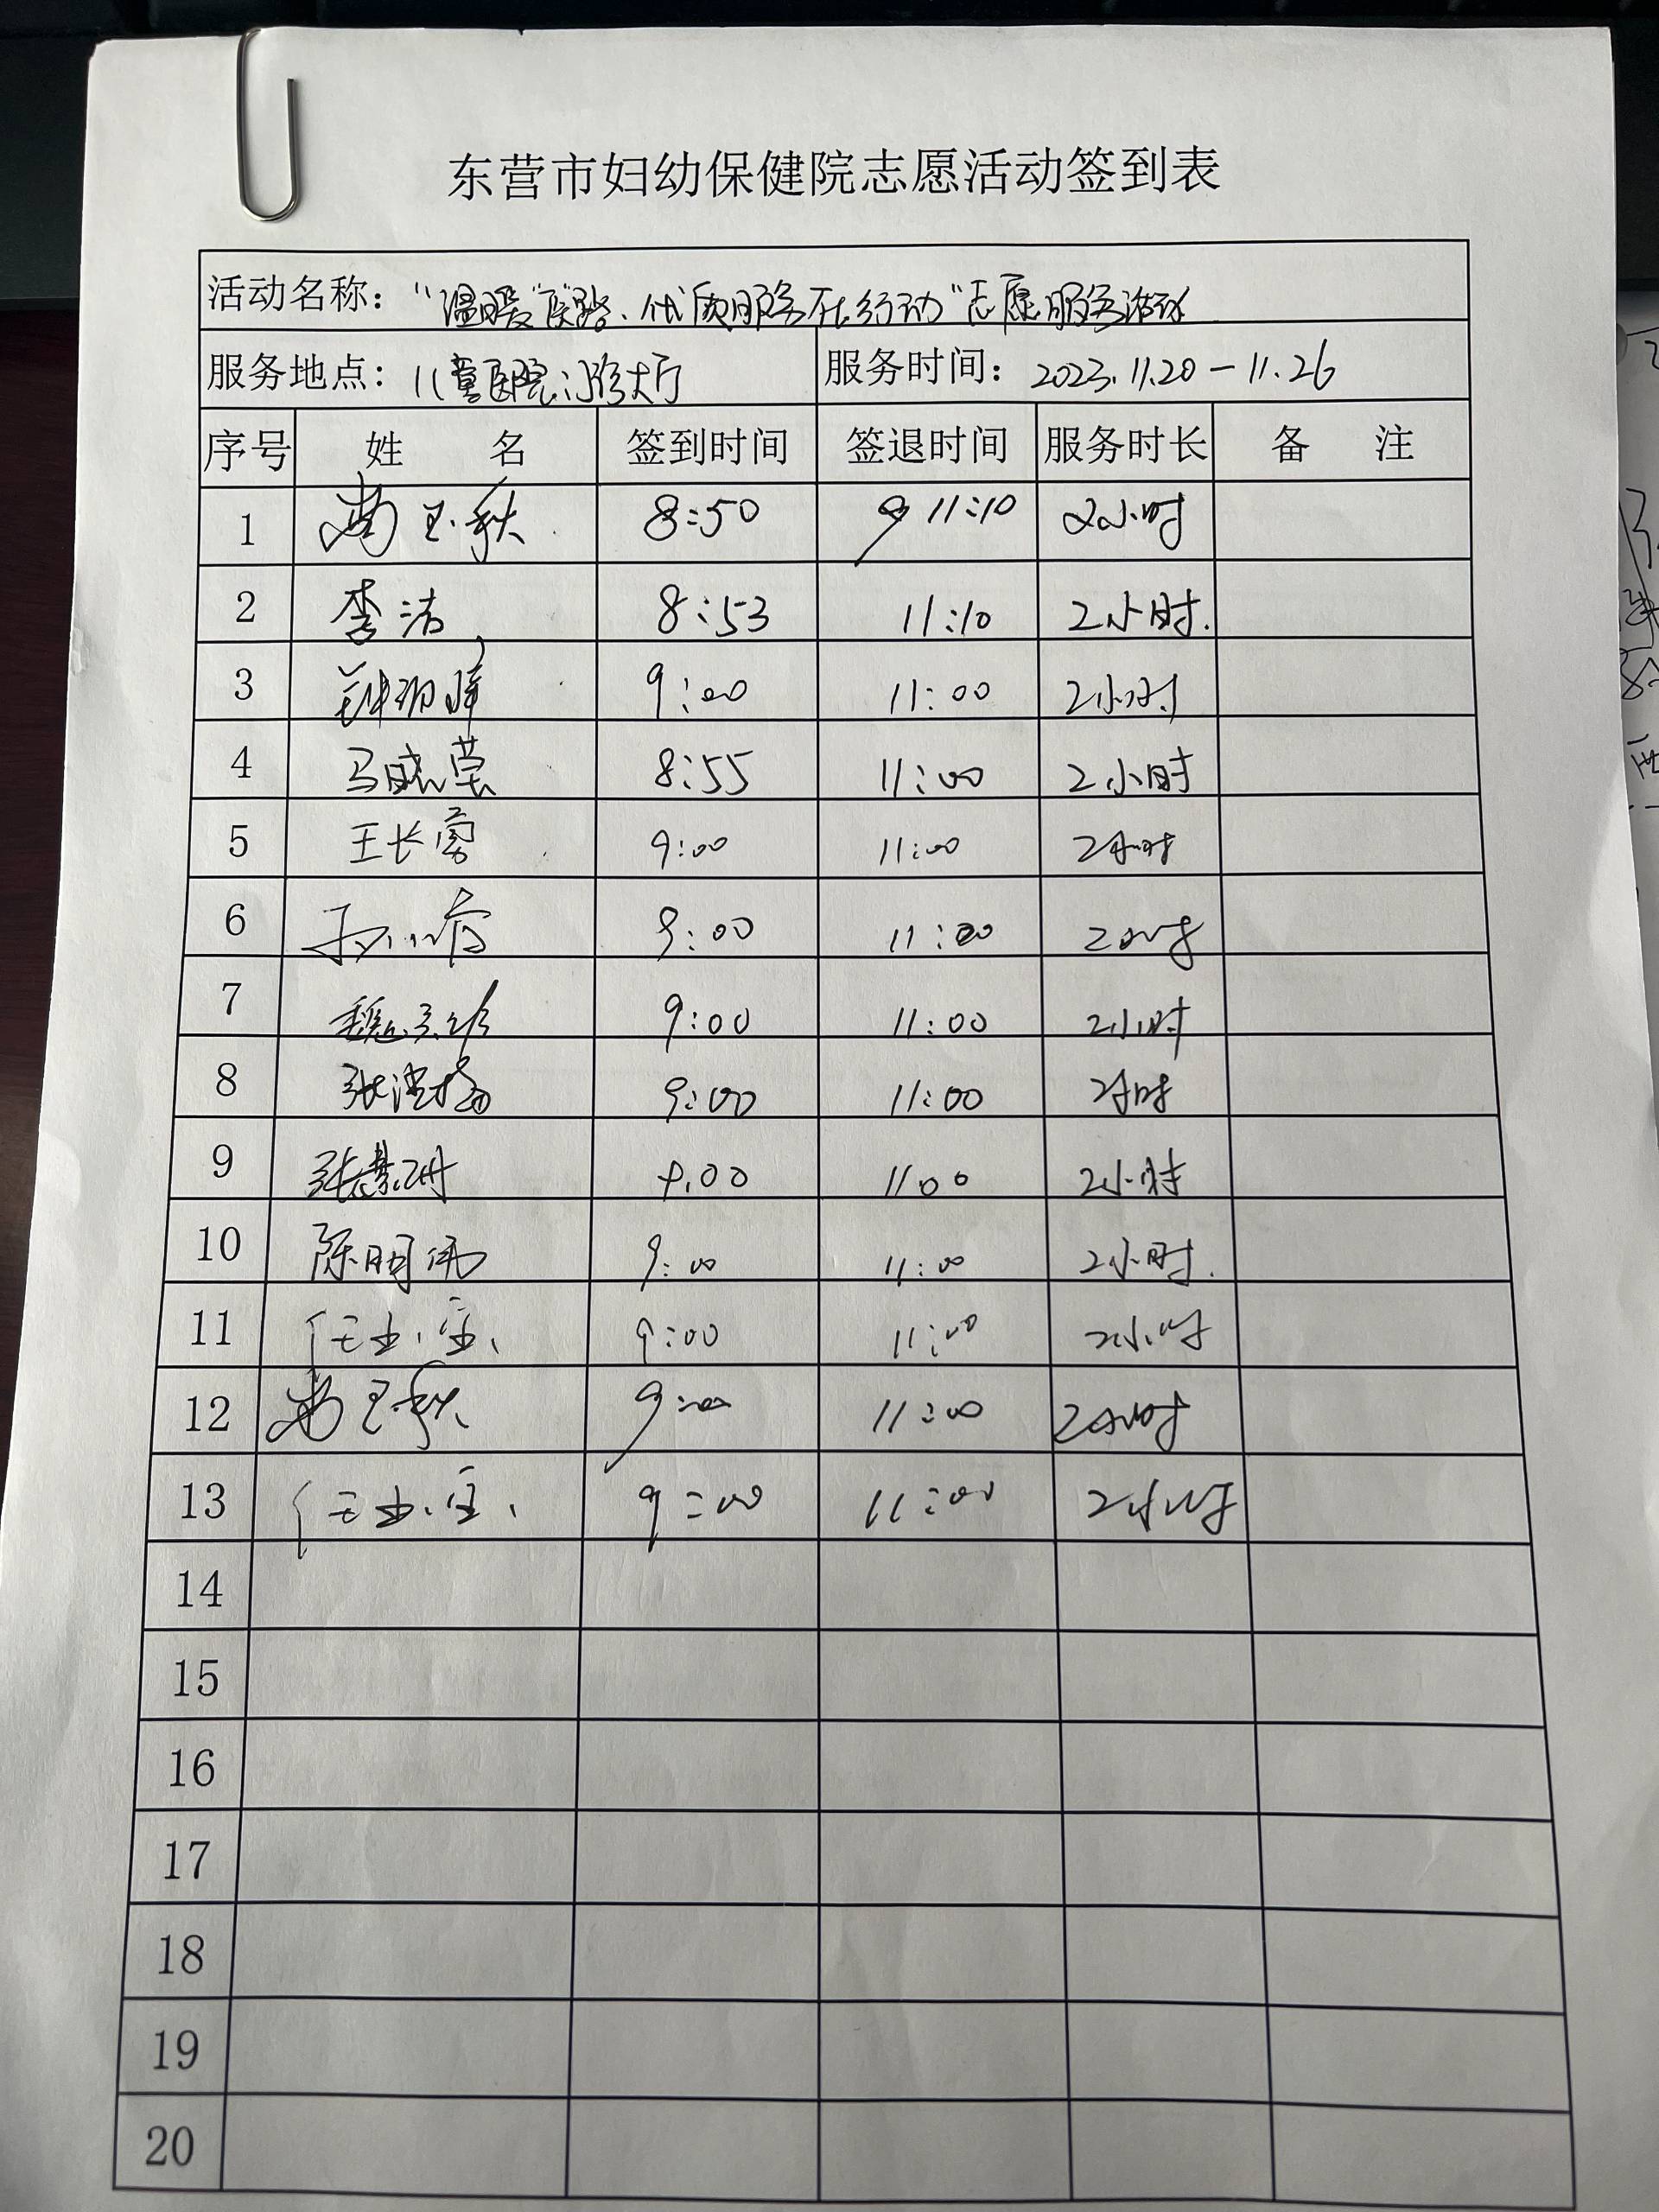 东营市妇幼保健院志愿活动签到表
活动名称：“温暖”医”路、优质服务在行动”志愿服务活动
服务地点：儿童医院门诊大厅 服务时间：2023.11.20-11.26
序号 姓名 签到时间 签退时间 服务时长 备注
1 玉秋 8:50 11:10 2小时
2 李洁 8:53 11:10 2小时.
3 9:00 11:00 2小时
4 马晓莹 8:55 11:00 2小时
5 王长 9:00 11:00 2小时
6 9:00 11:00 2小时
7 魏 9:00 11:00 2小时
8 张 9:00 11:00 2小时
9 张慧 9:00 11:00 2小时
10 陈明伟 9:00 11:00 2小时.
11 任 9:00 11:00 2小时
12 玉秋 9:00 11:00 2小时
13 任 9:00 11:00 2小时
14
15
16
17
18
19
20